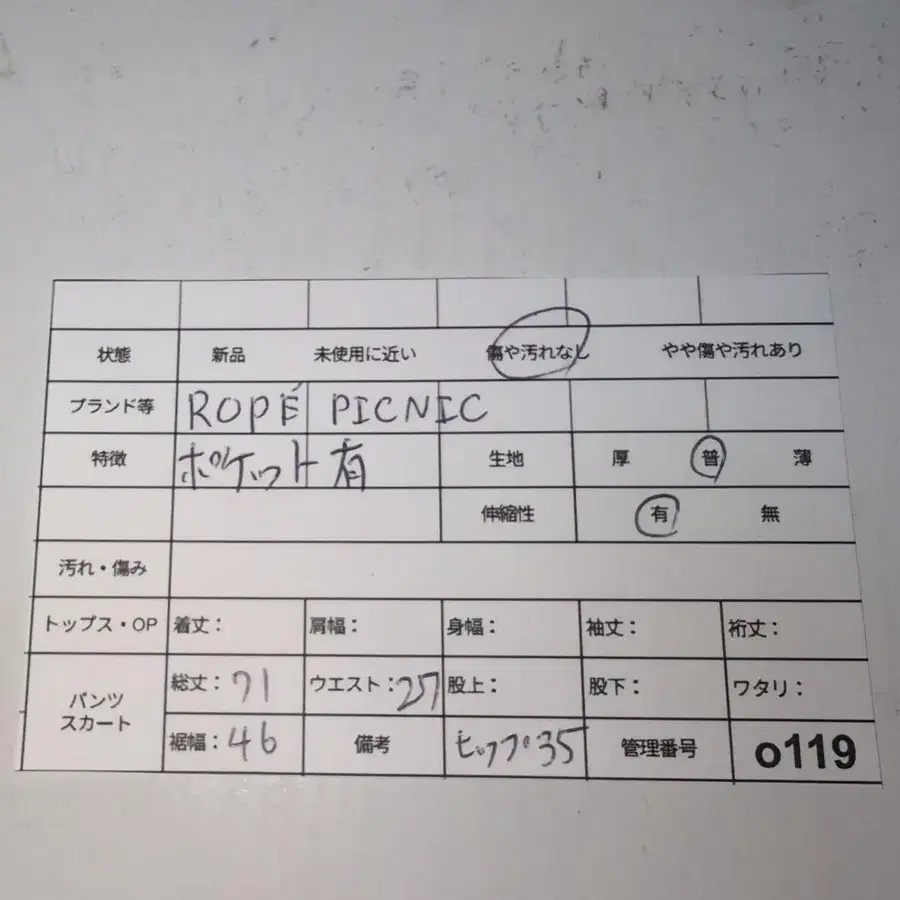 状態 新品 未使用に近い 傷や汚れなし やや傷や汚れあり
ブランド等 ROPÉ PICNIC
特徴 ポケット有 生地 厚 普 薄
伸縮性 有 無
汚れ・傷み
トップス・OP 着丈: 肩幅: 身幅: 袖丈: 裄丈:
パンツ スカート 総丈:71 ウエスト:27 股上: 股下: ワタリ:
裾幅:46 備考 ヒップ35 管理番号 o119